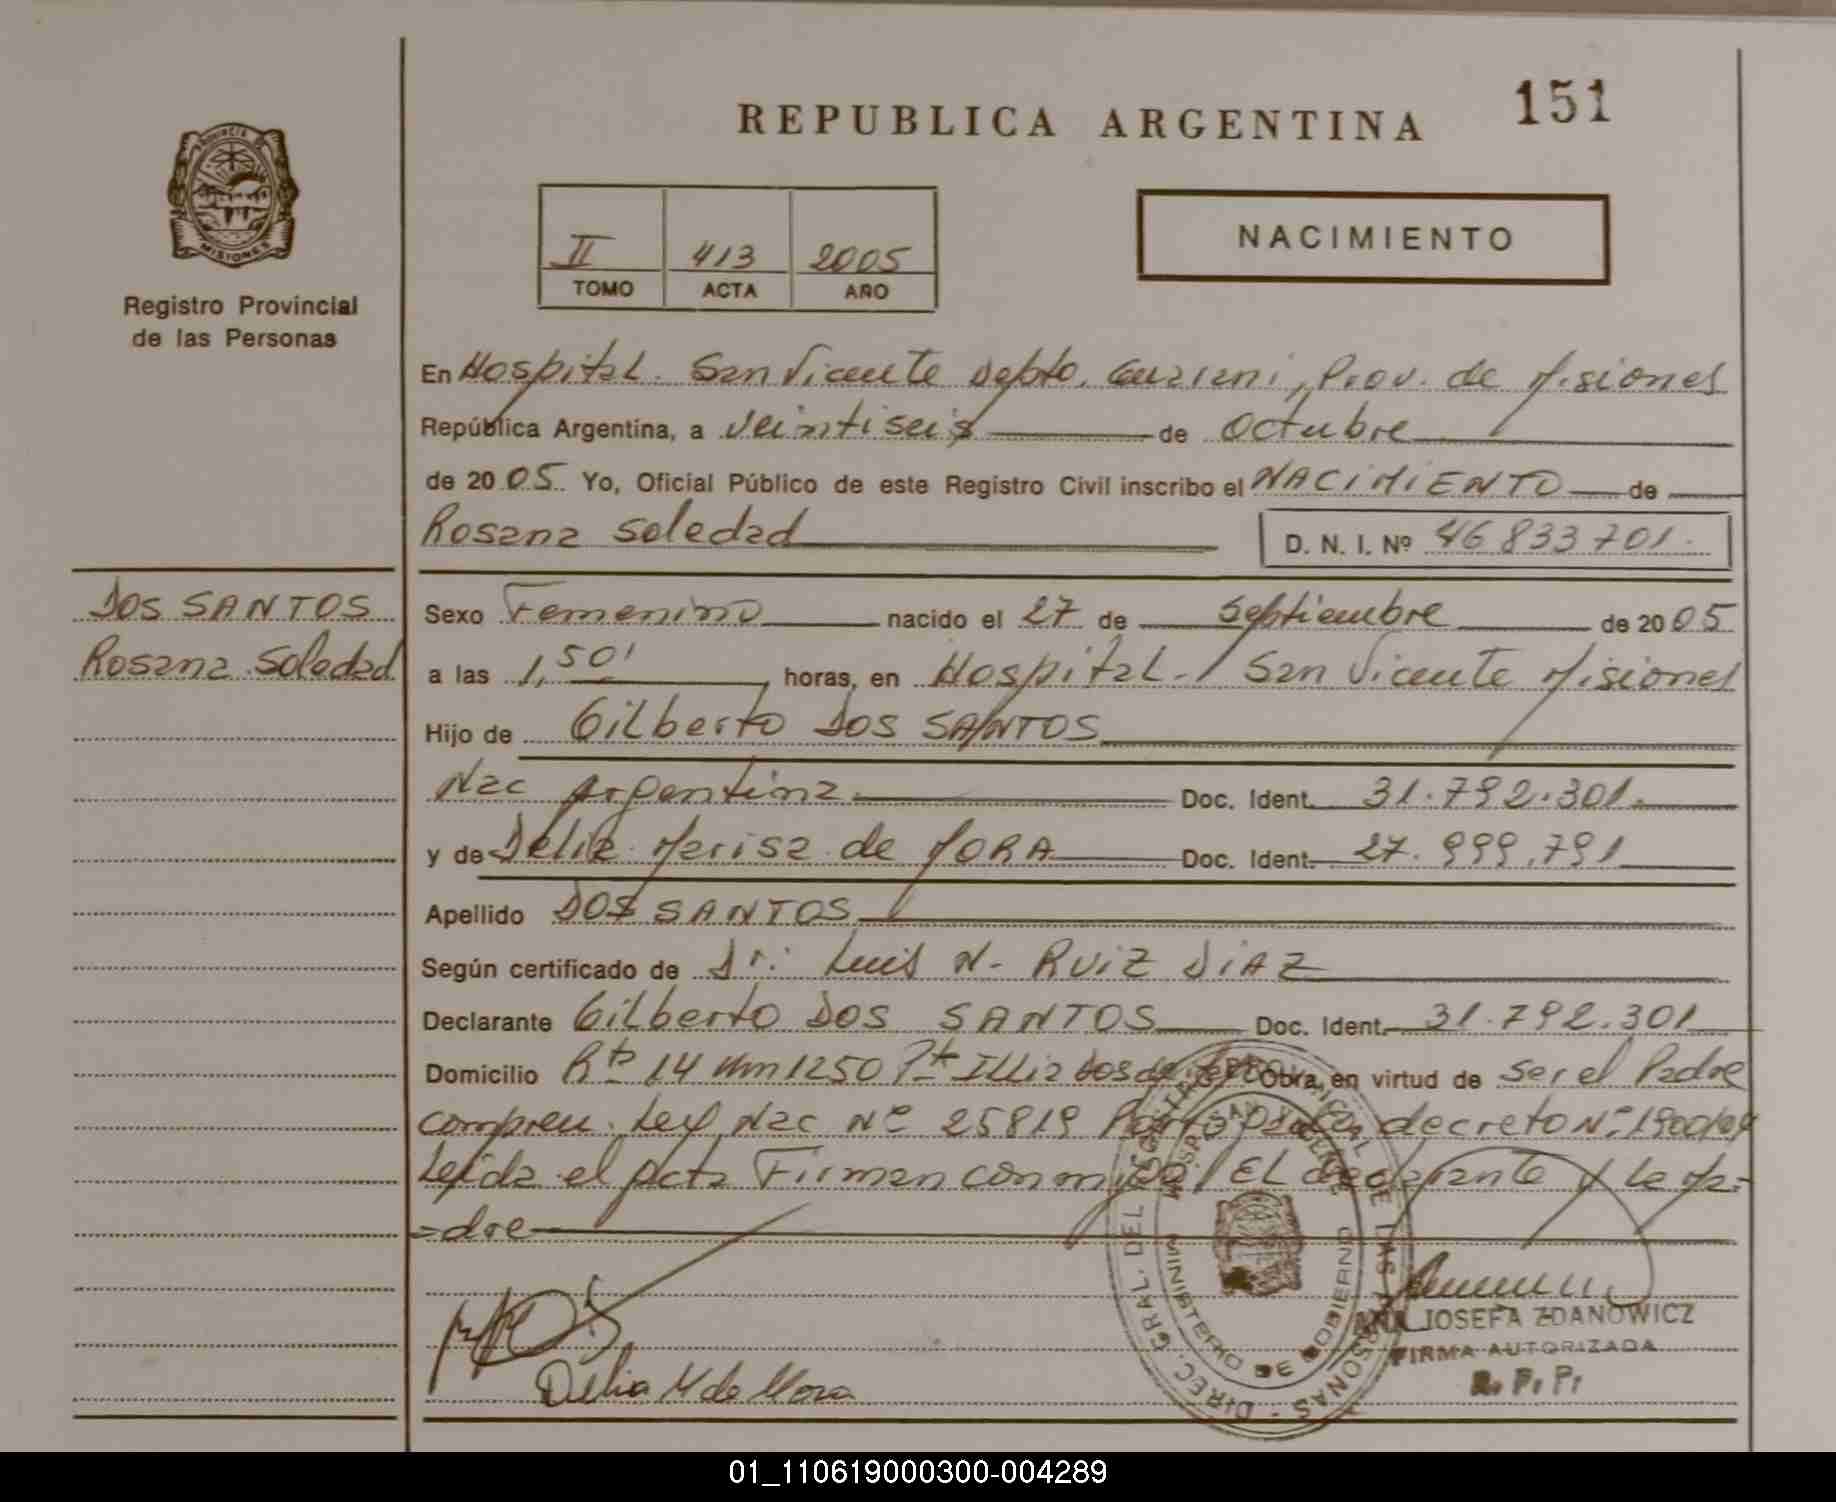 REPUBLICA ARGENTINA
151
PROVINCIA DE
MISIONES
Registro Provincial
de las Personas
II 413 2005
TOMO ACTA AÑO
NACIMIENTO
En Hospital. San Vicente Depto. Guarani, Prov. de Misiones
República Argentina, a veintiseis de Octubre
de 2005. Yo, Oficial Público de este Registro Civil inscribo el NACIMIENTO de
Rosana Soledad D. N. I. Nº 46 833 701.
DOS SANTOS
Rosana Soledad
Sexo Femenino nacido el 27 de Septiembre de 2005
a las 1,50' horas, en Hospital. San Vicente Misiones
Hijo de Gilberto DOS SANTOS
Nac Argentina. Doc. Ident. 31.792.301.
y de Delia Marisa de MORA Doc. Ident. 27.999.791
Apellido DOS SANTOS
Según certificado de Dr: Luis N. RUIZ DIAZ
Declarante Gilberto DOS SANTOS Doc. Ident. 31.792.301
Domicilio 14 Km 1250 Obra, en virtud de ser el Padre
compren. Ley Nac Nº 25819 decreto Nº 1900/04
Leida el Acta Firman conmigo EL declarante y la Ma-
=dre
Delia M de Mora
DIREC. GRAL. DEL REGISTRO PROVINCIAL DE LAS PERSONAS -
MINISTERIO DE GOBIERNO
ANA JOSEFA ZDANOWICZ
FIRMA AUTORIZADA
R. P. P.
01_110619000300-004289